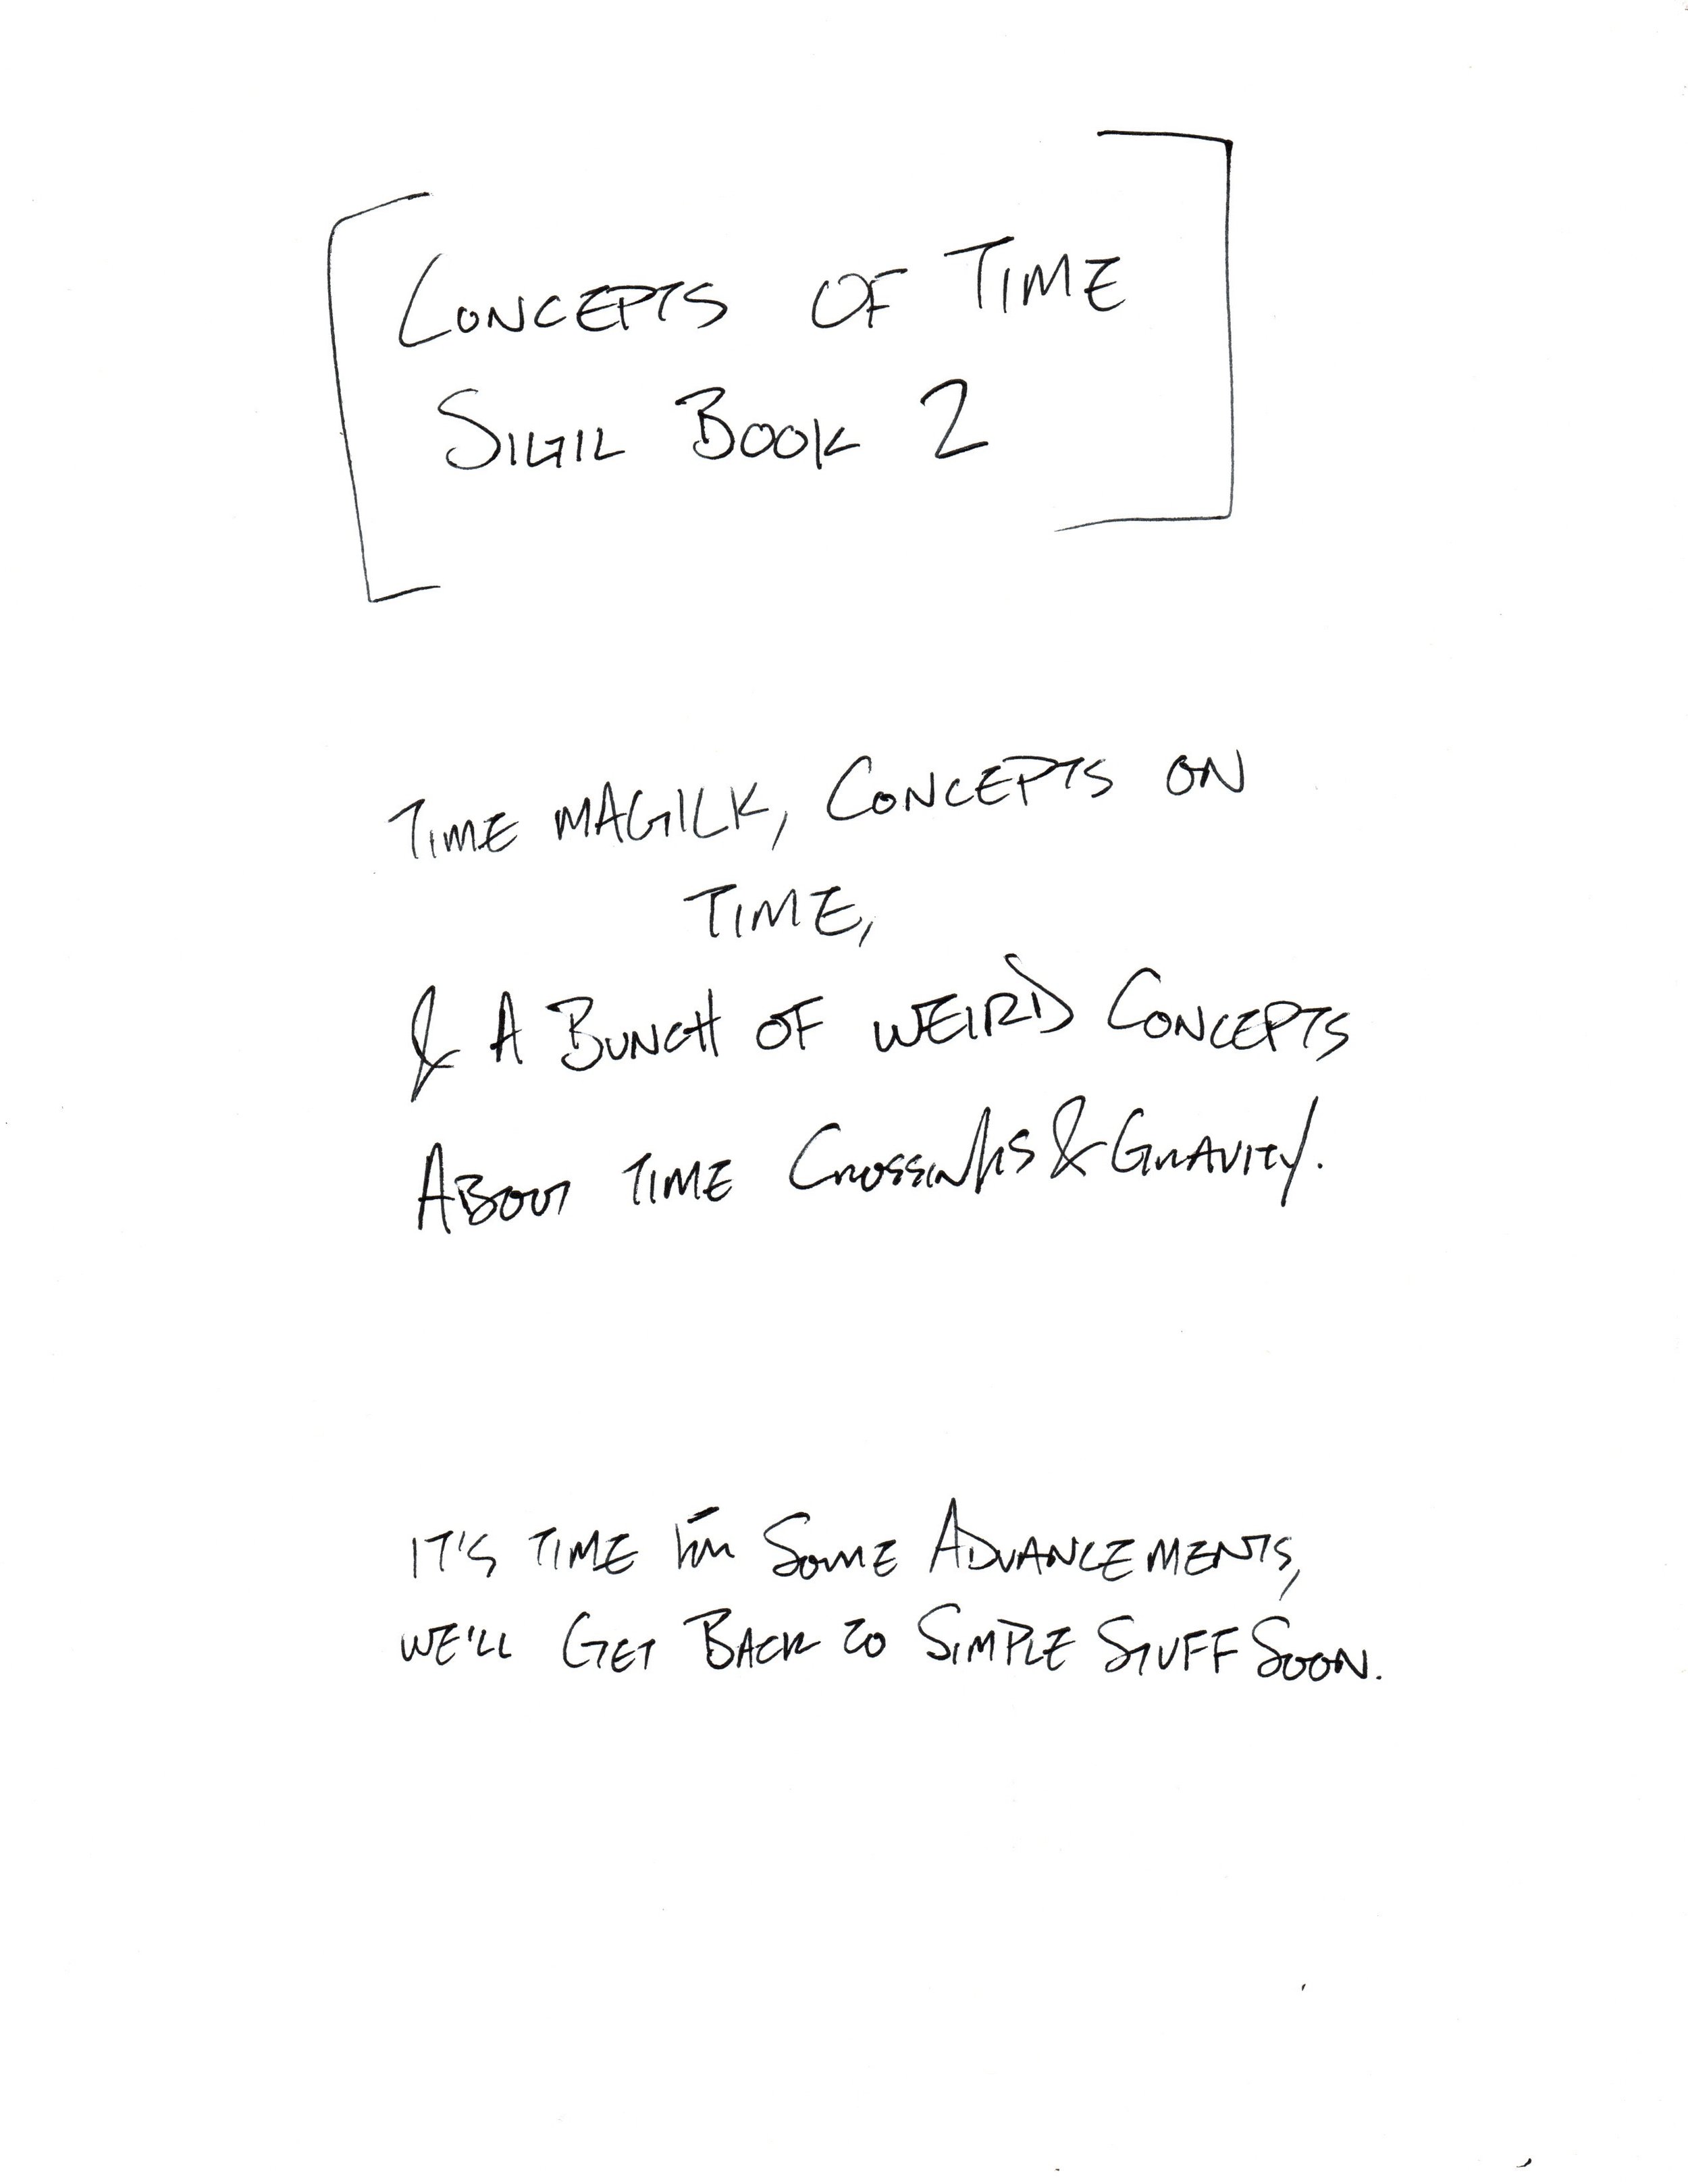 CONCEPTS OF TIME
SIGIL BOOK 2
TIME MAGICK, CONCEPTS ON
TIME,
& A BUNCH OF WEIRD CONCEPTS
ABOUT TIME CROSSINGS & GRAVITY.
IT'S TIME FOR SOME ADVANCEMENTS,
WE'LL GET BACK TO SIMPLE STUFF SOON.